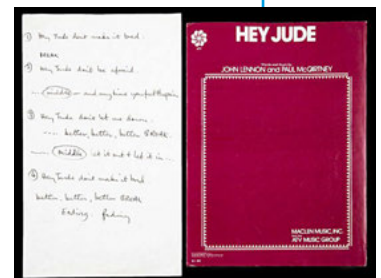 ① Hey Jude don't make it bad.
BREAK
② Hey Jude don't be afraid.
middle and anytime you feel the pain
③ Hey Jude don't let me down.
better, better, better BREAK.
middle let it out & let it in
④ Hey Jude don't make it bad
better, better, better BREAK
Fading. fading
HEY JUDE
JOHN LENNON and PAUL McCARTNEY
MACLEN MUSIC, INC.
ATV MUSIC GROUP